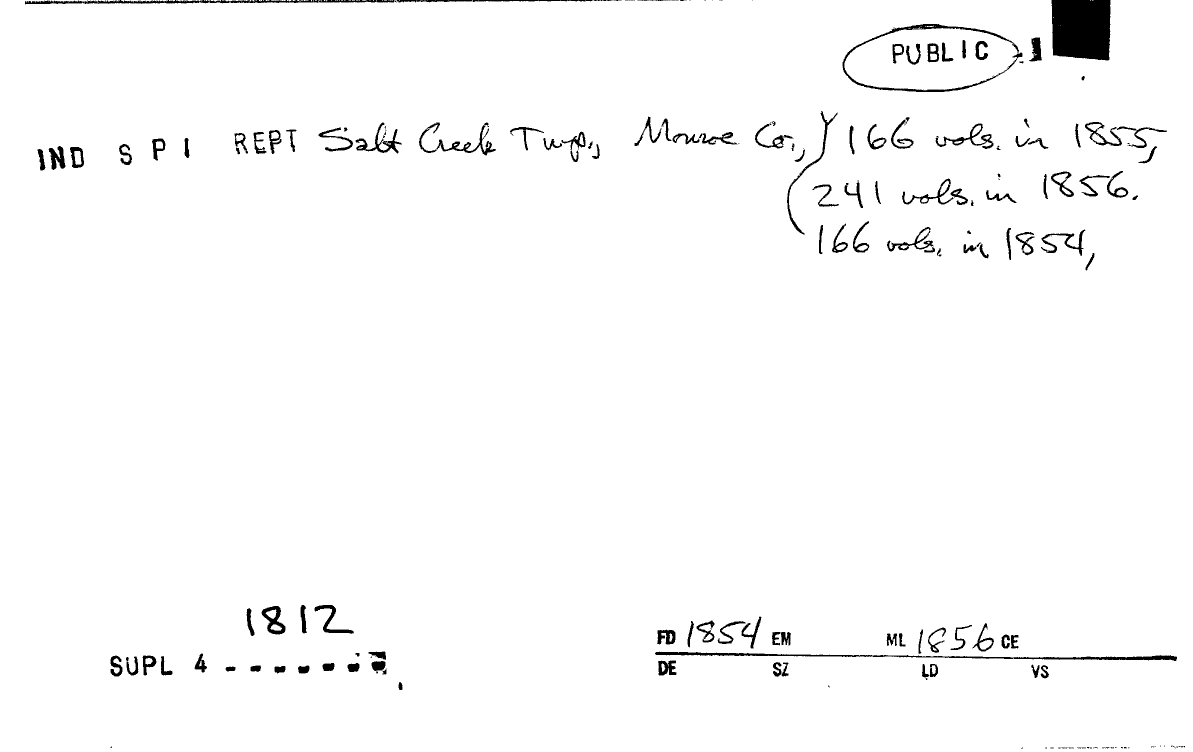 PUBLIC
IND S P I REPT Salt Creek Twp., Monroe Co., 166 vols. in 1855,
241 vols. in 1856.
166 vols. in 1854,
1812
SUPL 4
FD 1854 EM ML 1856 CE
DE SZ LD VS